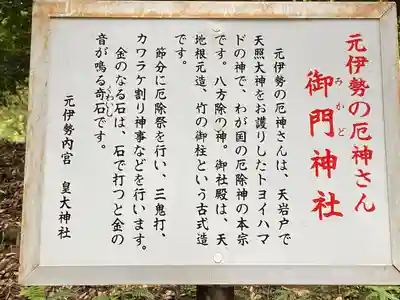 元伊勢の厄神さん
御門神社
みかど
元伊勢の厄神さんは、天岩戸で
天照大神をお護りしたトヨイハマ
ドの神で、わが国の厄除神の本宗
です。八方除の神。御社殿は、天
地根元造、竹の御柱という古式造
です。
節分に厄除祭を行い、三鬼打、
カワラケ割り神事などを行います。
金のなる石は、石で打つと金の
音が鳴る奇石です。
くわしし
元伊勢内宮 皇大神社